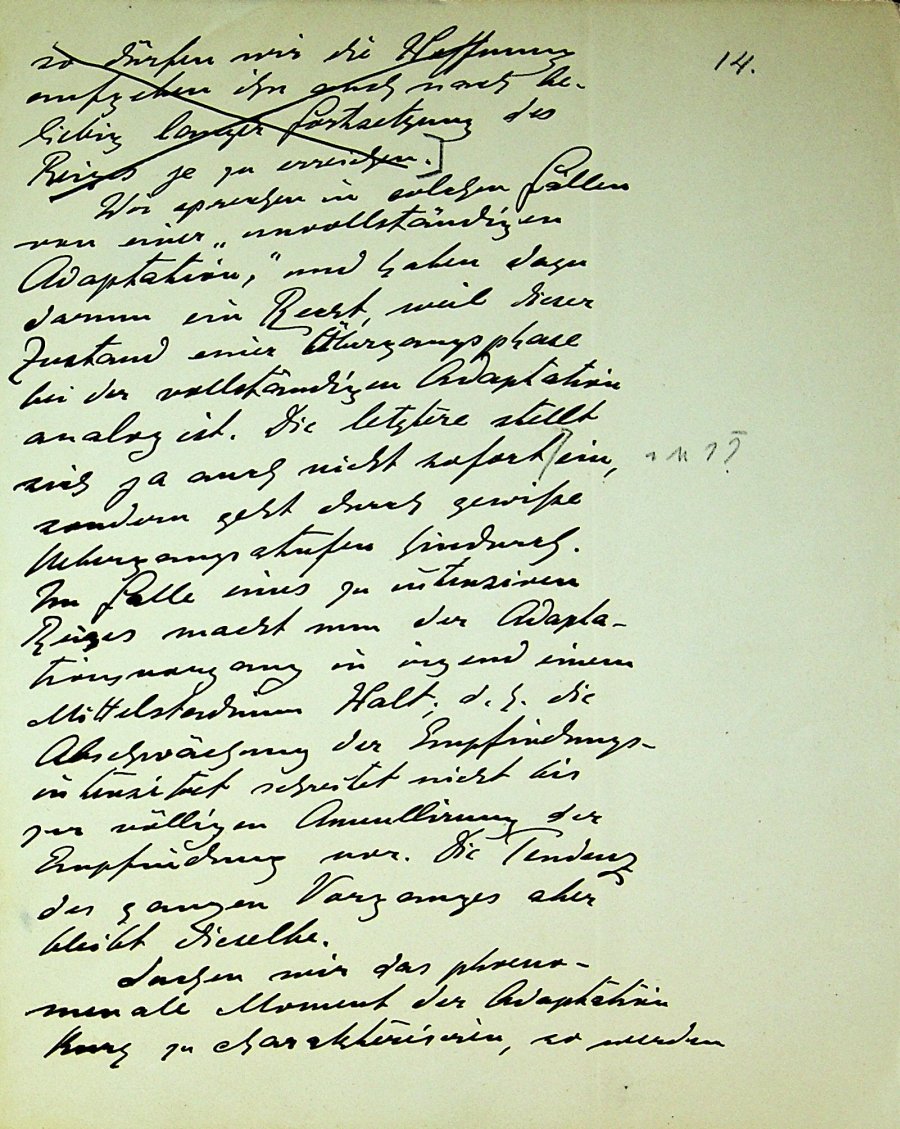 14.
so dürfen wir die Hoffnung
aufgeben ihn auch nach be-
liebig langer Fortsetzung des
Reizes je zu erreichen.]
Wir sprechen in solchen Fällen
von einer „unvollständigen
Adaptation," und haben dazu
darum ein Recht, weil dieser
Zustand einer Übergangsphase
bei der vollständigen Adaptation
analog ist. Die letztere stellt
sich ja auch nicht sofort ein,
sondern geht durch gewisse
Uebergangsstufen hindurch.
Im Falle eines zu intensiven
Reizes macht nun der Adapta-
tionsvorgang in irgend einem
Mittelstadium Halt; d. h. die
Abschwächung der Empfindungs-
intensität schreitet nicht bis
zur völligen Annullirung der
Empfindung vor. Die Tendenz
des ganzen Vorganges aber
bleibt dieselbe.
Suchen wir das phaeno-
menale Moment der Adaptation
kurz zu charakterisiren, so werden